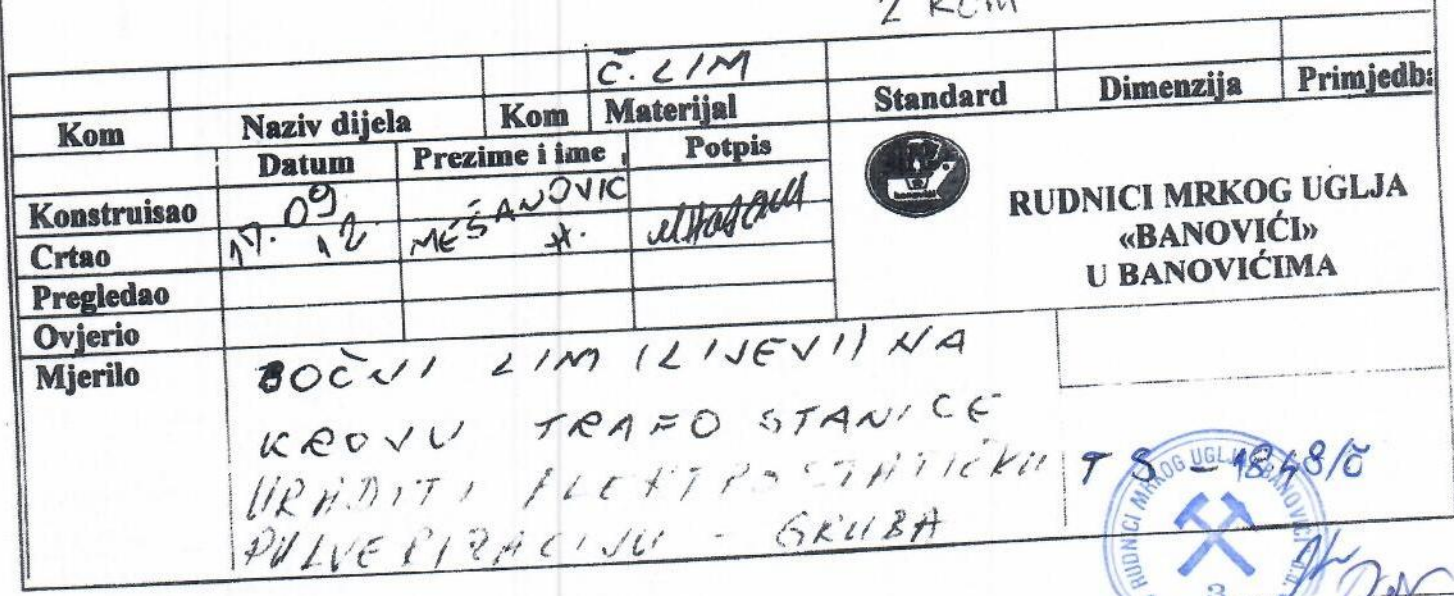 2 kom
Č. LIM
Kom Naziv dijela Kom Materijal Standard Dimenzija Primjedba
Datum Prezime i ime Potpis
Konstruisao 17.09.12. MEŠANOVIC H.
Crtao
Pregledao
Ovjerio
Mjerilo
RUDNICI MRKOG UGLJA
«BANOVIĆI»
U BANOVIĆIMA
BOČNI LIM (LIJEVI) NA
KROVU TRAFO STANICE
URADITI ELEKTROSTATIČKU
PULVERIZACIJU - GRUBA
TS - 1848/Č
RUDNICI MRKOG UGLJA BANOVIĆI d.d.
3